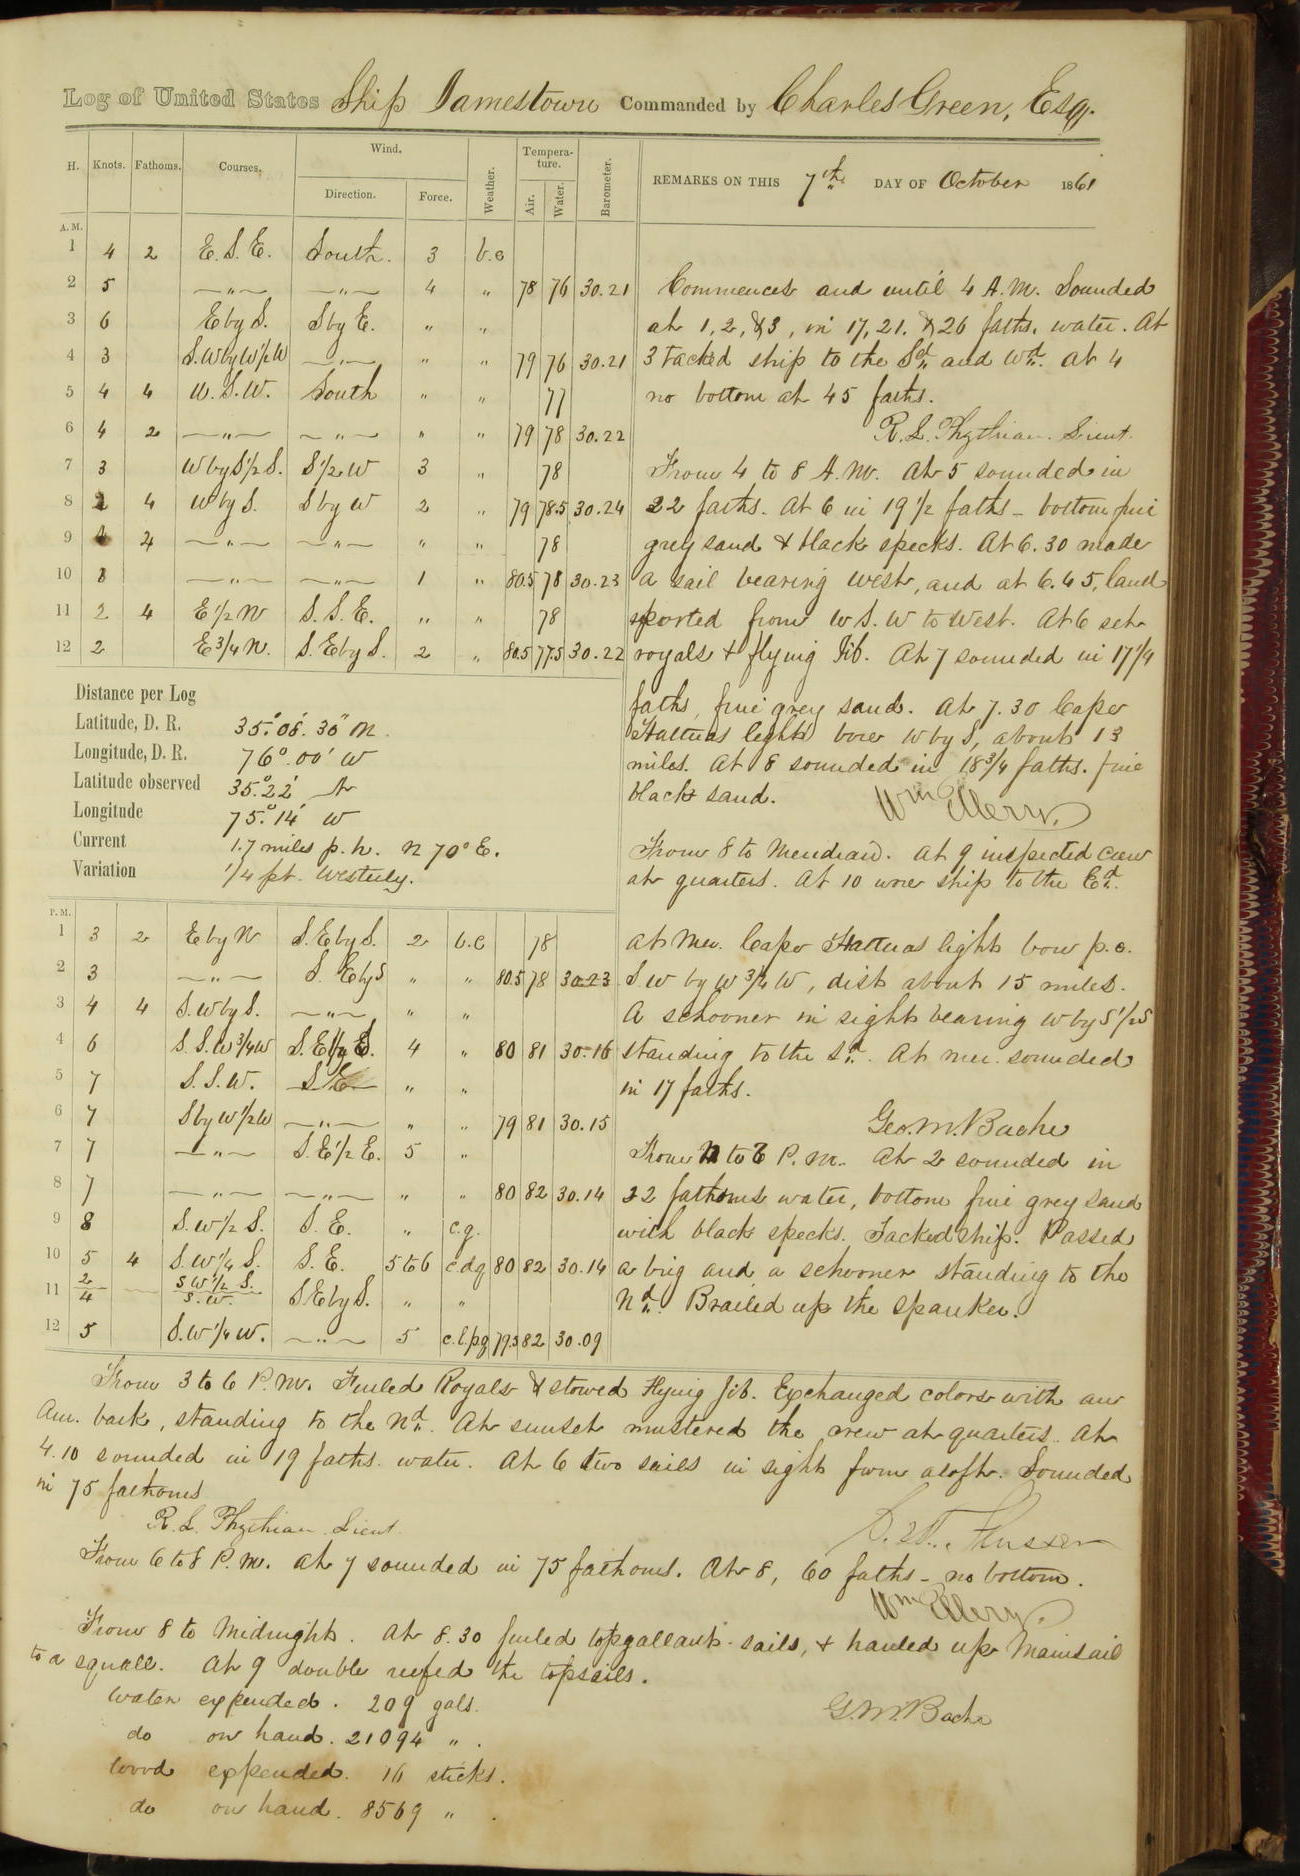 Log of United States Ship Jamestown Commanded by Charles Green, Esq.
H. Knots. Fathoms. Courses. Wind. Direction. Force. Weather. Tempera-ture. Air. Water. Barometer. REMARKS ON THIS 7th DAY OF October 1861
A.M.
1 4 2 E.S.E. South. 3 b.c
2 5 —"— —"— 4 " 78 76 30.21
3 6 E by S. S by E. " "
4 3 S.W by W 1/2 W —"— " " 79 76 30.21
5 4 4 W.S.W. South " " 77
6 4 2 —"— —"— " " 79 78 30.22
7 3 W by S 1/2 S. S 1/2 W 3 " 78
8 2 4 W by S. S by W 2 " 79 78.5 30.24
9 4 —"— —"— " " 78
10 —"— —"— 1 " 80.5 78 30.23
11 2 4 E 1/2 N S.S.E. " " 78
12 2 E 3/4 N. S.E by S. 2 " 80.5 77.5 30.22
Commences and until 4 A.M. Sounded
at 1, 2, & 3, in 17, 21, & 26 faths. water. At
3 tacked ship to the Sd. and Wd. At 4
no bottom at 45 faths.
R. L. Phythian. Lieut.
From 4 to 8 A.M. At 5 sounded in
22 faths. At 6 in 19 1/2 faths - bottom fine
grey sand & black specks. At 6.30 made
a sail bearing West, and at 6.45, land
reported from W S.W to West. At 6 set
royals & flying Jib. At 7 sounded in 17 1/4
faths, fine grey sand. At 7.30 Cape
Hatteras light bore W by S, about 13
miles. At 8 sounded in 18 3/4 faths. fine
black sand. Wm Ellery.
Distance per Log
Latitude, D. R. 35°.08'.30" N.
Longitude, D. R. 76°.00' W
Latitude observed 35°.22' N
Longitude 75°.14' W
Current 1.7 miles p. h. N 70° E.
Variation 1/4 pt. Westerly.
From 8 to Meridian. At 9 inspected crew
at quarters. At 10 wore ship to the Ed.
P.M.
1 3 2 E by N S.E by S. 2 b.c 78
2 3 —"— S. E by S " " 80.5 78 30.23
3 4 4 S.W by S. —"— " "
4 6 S.S.W 3/4 W 4 " 80 81 30.16
5 7 S.S.W. S.E. " "
6 7 S by W 1/2 W —"— " " 79 81 30.15
7 7 —"— S.E 1/2 E. 5 "
8 7 —"— —"— " " 80 82 30.14
9 8 S.W 1/2 S. S.E. " c.g.
10 5 4 S.W 1/4 S. S.E. 5 to 6 c.d.q 80 82 30.14
11 2/4 S W 1/2 S. S.W. S.E by S. " "
12 5 S.W 1/4 W. —"— 5 c.l.p.q 79.5 82 30.09
At Mer. Cape Hatteras light bore p. c.
S W by W 3/4 W, dist about 15 miles.
A schooner in sight bearing W by S 1/2 S
standing to the Sd. At mer. sounded
in 17 faths.
Geo. M. Bache
From to P.M. At 2 sounded in
22 fathoms water, bottom fine grey sand
with black specks. Tacked ship. Passed
a brig and a schooner standing to the
Nd. Brailed up the spanker.
From 3 to 6 P.M. Furled Royals & stowed Flying Jib. Exchanged colors with an
Am. bark, standing to the Nd. At sunset mustered the crew at quarters. At
4.10 sounded in 19 faths. water. At 6 two sails in sight from aloft. Sounded
in 75 fathoms
R. L. Phythian. Lieut.
From 6 to 8 P.M. At 7 sounded in 75 fathoms. At 8, 60 faths - no bottom.
Wm Ellery.
From 8 to Midnight. At 8.30 furled topgallant-sails, & hauled up Mainsail
to a squall. At 9 double reefed the topsails.
Water expended. 209 gals.
G. M. Bache
do on hand. 21094 " .
Wood expended. 16 sticks.
do on hand. 8569 " .